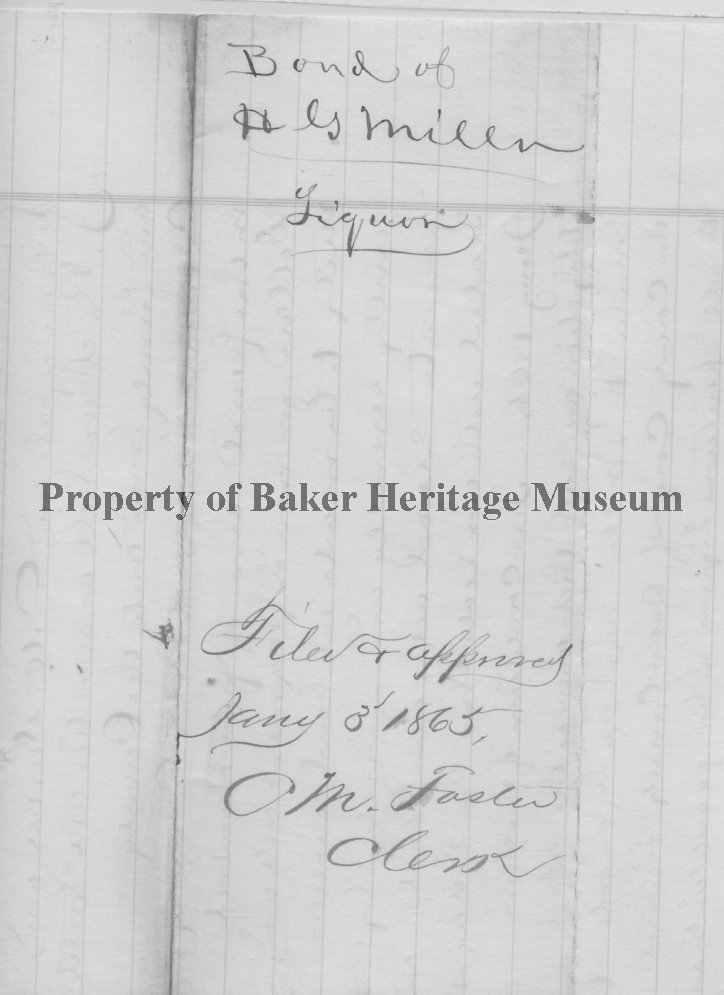 Bond of
H G Miller
Liquor
Property of Baker Heritage Museum
Filed & approved
Jany 3 1865,
C M. Foster
Clerk